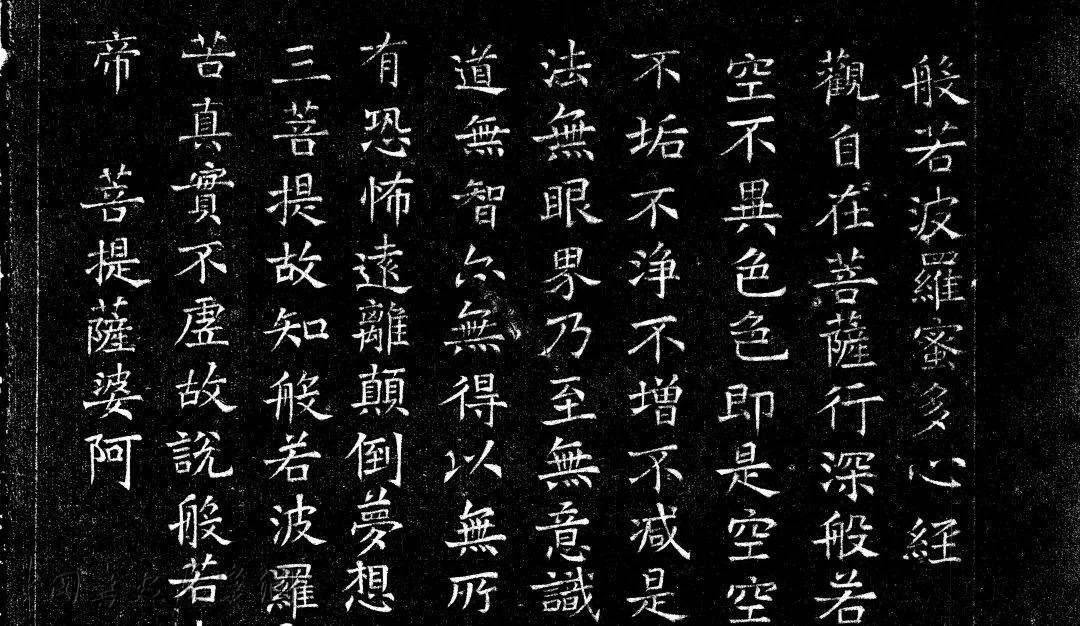 般若波羅蜜多心経
觀自在菩薩行深般若
空不異色色即是空空
不垢不浄不增不减是
法無眼界乃至無意識
道無智亦無得以無所
有恐怖遠離顛倒夢想
三菩提故知般若波羅
苦真實不虛故說般若
帝 菩提薩婆阿